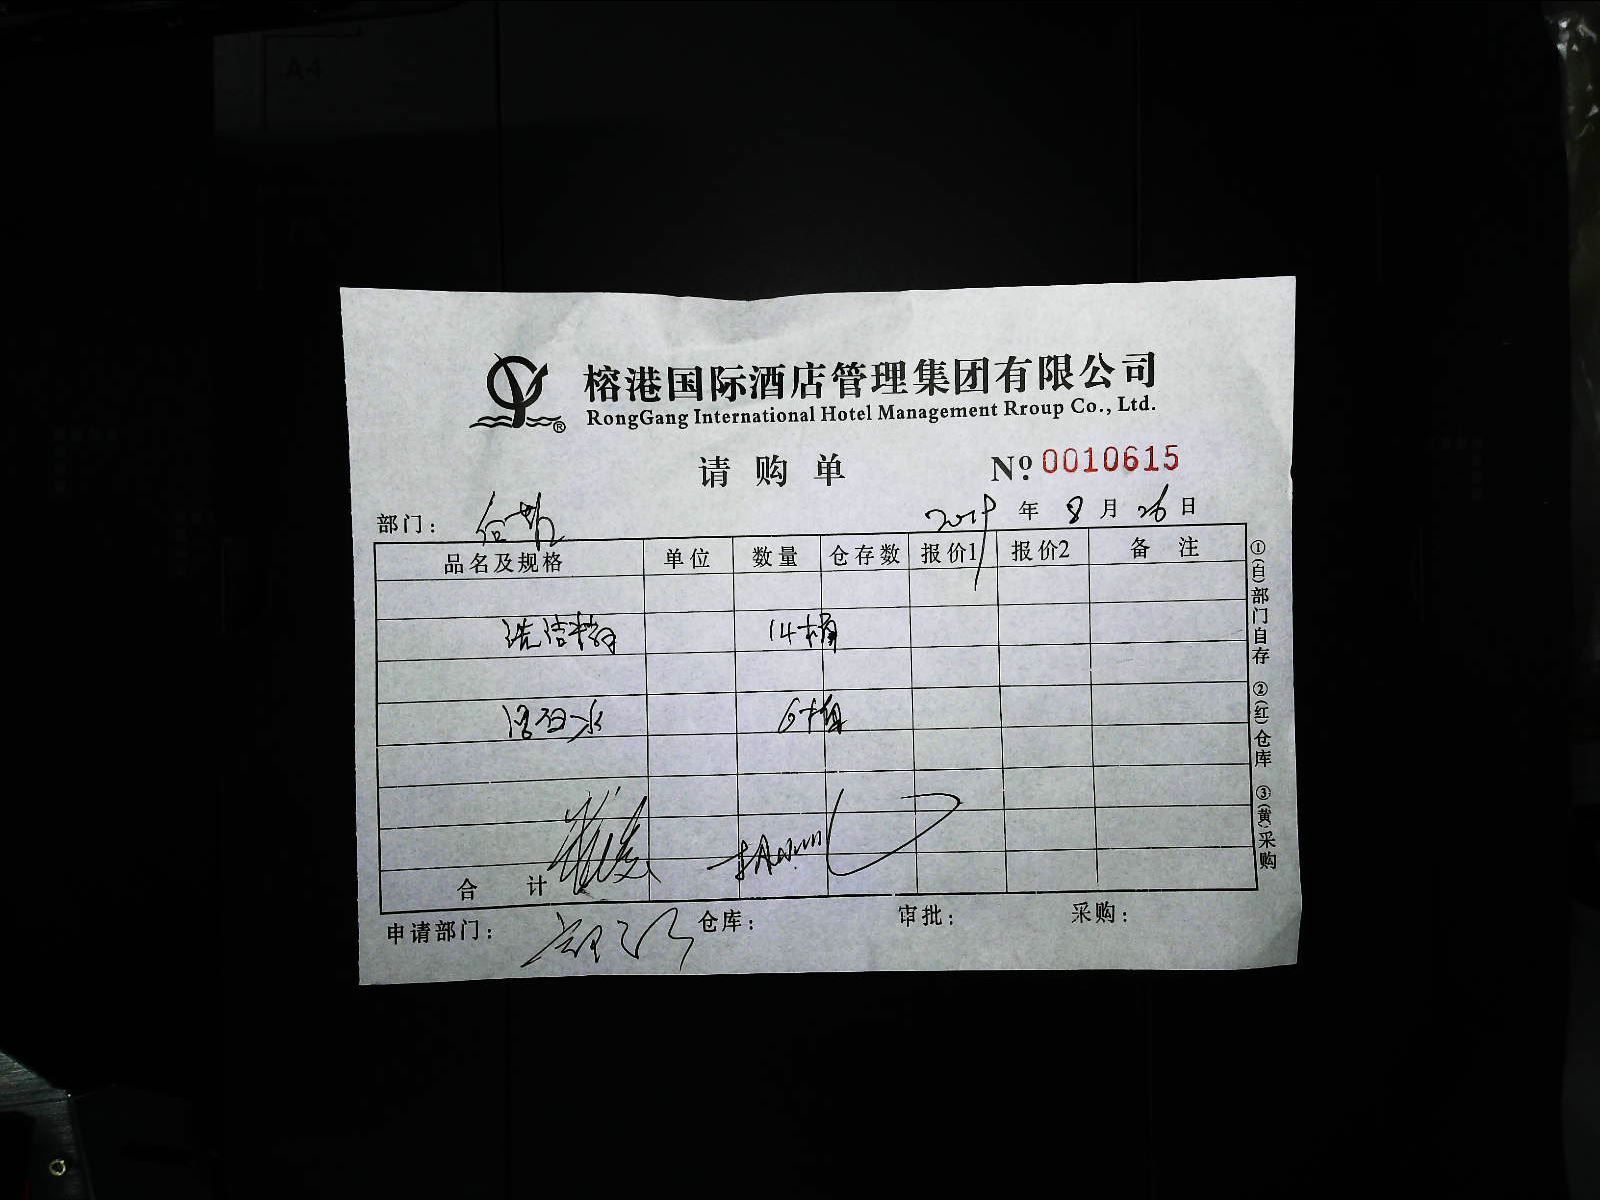 榕港国际酒店管理集团有限公司
RongGang International Hotel Management Rroup Co., Ltd.
请购单 Nº 0010615
部门： 2019 年 8 月 26 日
品名及规格 单位 数量 仓存数 报价1 报价2 备注
洗洁精 14桶
漂白水 6桶
合计
申请部门： 仓库： 审批： 采购：
①(白)部门自存 ②(红)仓库 ③(黄)采购
A4